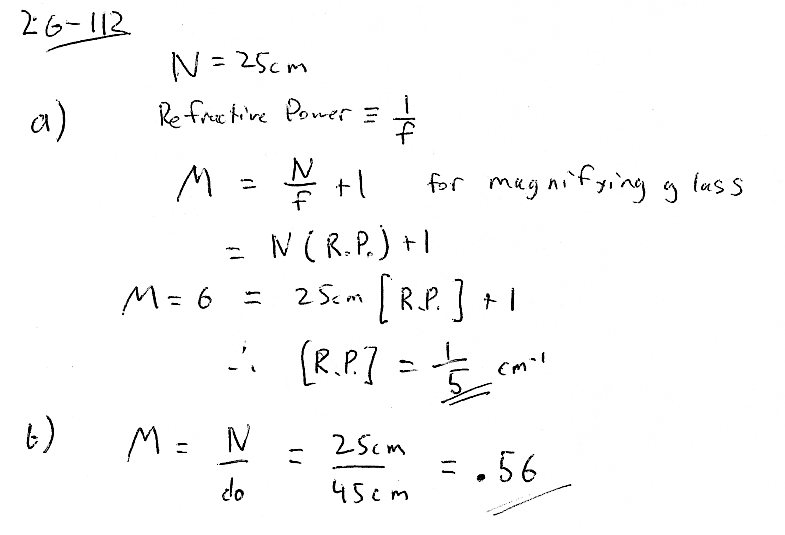 26-112
N = 25cm
a) Refractive Power ≡ 1/f
M = N/f + 1 for magnifying glass
= N (R.P.) + 1
M = 6 = 25cm [R.P.] + 1
∴ [R.P.] = 1/5 cm⁻¹
b) M = N/do = 25cm/45cm = .56